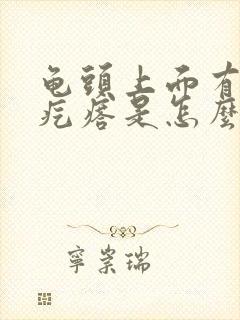 龟頭上面有
疙瘩是怎麼
寧崇瑞